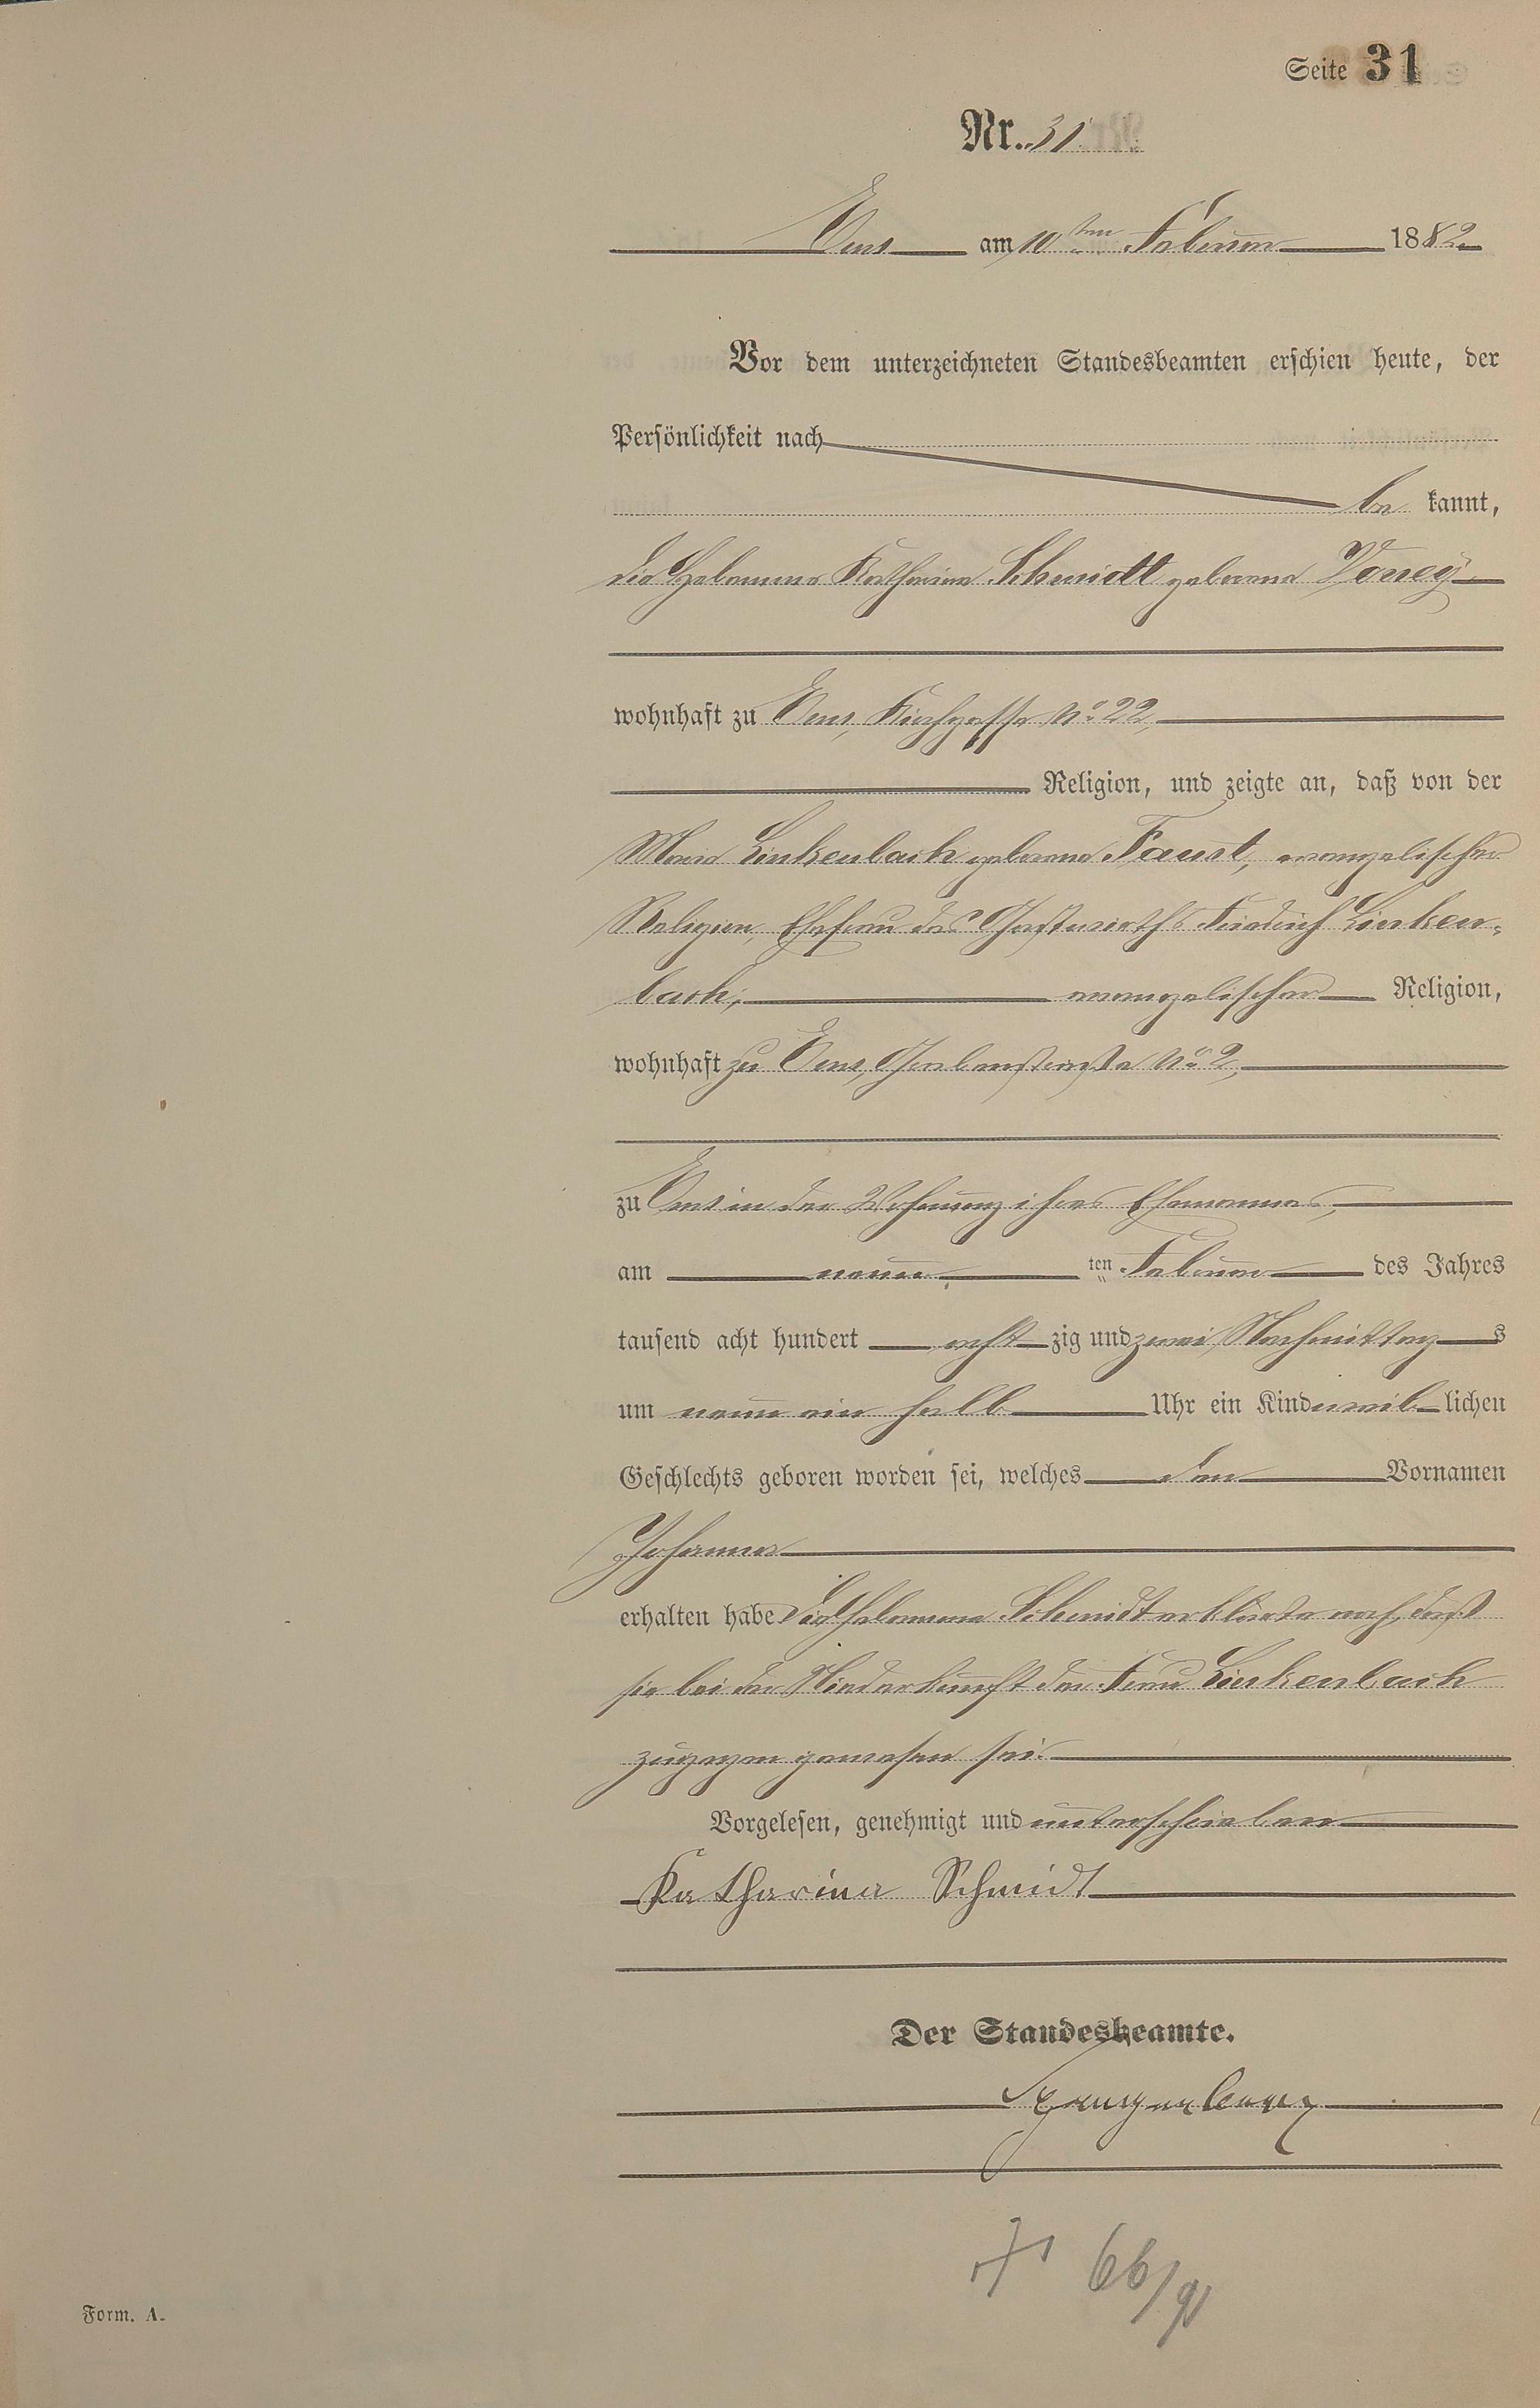 Seite 31
Nr. 31
Ems am 10ten Februar 1882
Vor dem unterzeichneten Standesbeamten erschien heute, der
Persönlichkeit nach
be kannt,
die Hebamme Katharina Schmidt geborene
wohnhaft zu Ems, Kirchgasse No 22,
Religion, und zeigte an, daß von der
Maria Linkenbach geborene Faust, evangelischer
Religion, Ehefrau des Gastwirths Friedrich Linken-
bach, evangelischer Religion,
wohnhaft zu Ems, Grabenstraße No 2,
zu Ems in der Wohnung ihres Ehemannes,
am neun ten Februar des Jahres
tausend acht hundert acht zig und zwei Nachmittag s
um neun ein halb Uhr ein Kind weib lichen
Geschlechts geboren worden sei, welches den Vornamen
Johanna
erhalten habe Die Hebamme Schmidt erklärte noch, daß
sie bei der Niederkunft der Frau Linkenbach
zugegen gewesen sei.
Vorgelesen, genehmigt und unterschrieben
Katharina Schmidt
Der Standesbeamte.
Spangenberg
66/91
Form. A.